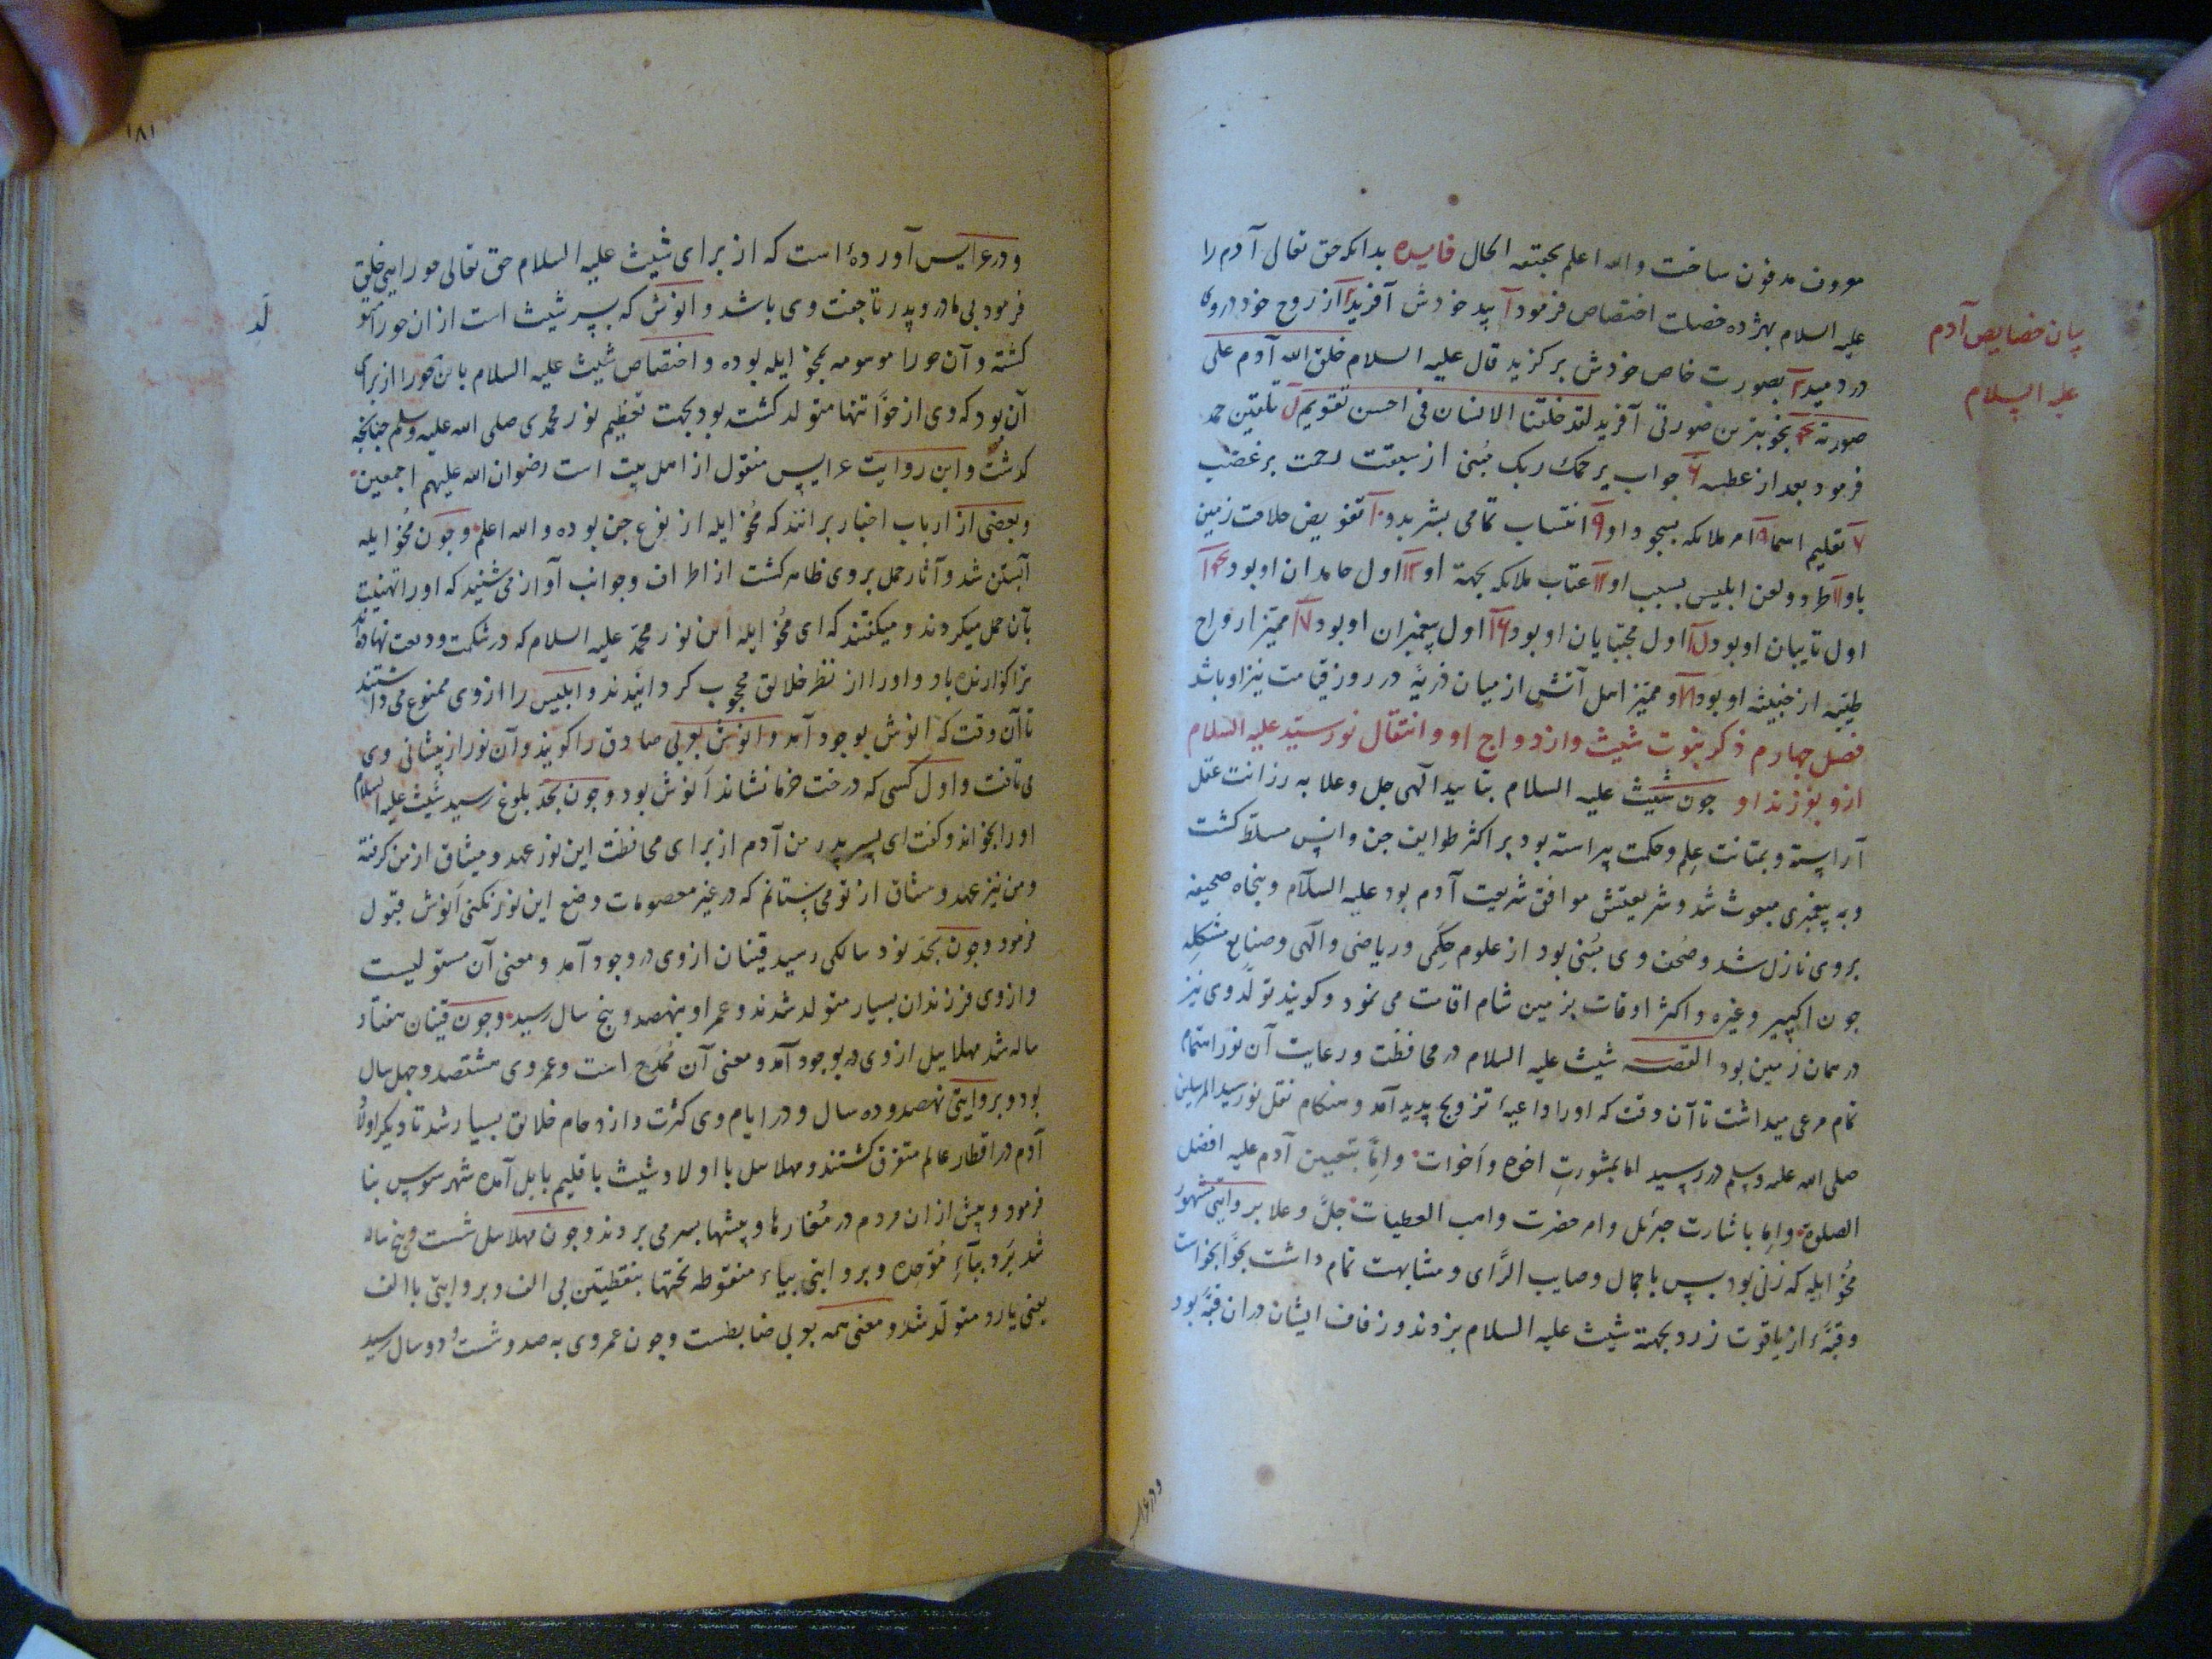 معروف مدفون ساخت والله اعلم بحقیقه الحال فایده بدانکه حق تعالی آدم را
علیه السلام بهژده خصلت اختصاص فرمود ۱ بید خودش آفرید ۲ از روح خود در وی
در دمید ۳ بصورت خاص خودش برکزید قال علیه السلام خلق الله آدم علی
صورته ۴ بخوبترین صورتی آفرید لقد خلقنا الانسان فی احسن تقویم ۵ تلقین حمد
فرمود بعد از عطسه ۶ جواب یرحمک ربک مبنی از سبقت رحمت بر غضب
۷ تعلیم اسما ۸ امر ملائکه بسجود او ۹ انتساب تمامی بشر بدو ۱۰ تفویض خلافت زمین
باو ۱۱ طرد ولعن ابلیس بسبب او ۱۲ عتاب ملائکه بجهة او ۱۳ اول حامدان او بود ۱۴
اول تایبان او بود ۱۵ اول مجتبایان او بود ۱۶ اول پیغمبران او بود ۱۷ ممیز ارواح
طیبه از خبیثه او بود ۱۸ و ممیز اهل آتش از میان ذریة در روز قیامت نیز او باشد
فصل چهارم ذکر نبوت شیث وازدواج او وانتقال نور سید علیه السلام
ازو بفرزند او جون شیث علیه السلام بتایید الهی جل وعلا به رزانت عقل
آراسته وبمتانت علم وحکمت پیراسته بود بر اکثر طوایف جن وانس مسلط کشت
وبه پیغمبری مبعوث شد وشریعتش موافق شریعت آدم بود علیه السلام وپنجاه صحیفه
بروی نازل شد وصحف وی مبنی بود از علوم حکمی وریاضی والهی وصنایع مشکله
جون اکسیر وغیره واکثر اوقات بزمین شام اقامت می نمود وکویند تولد وی نیز
در همان زمین بود القصه شیث علیه السلام در محافظت ورعایت آن نور اهتمام
تمام مرعی میداشت تا آن وقت که اورا داعیهٔ تزویج پدید آمد وهنکام نقل نور سید المرسلین
صلی الله علیه وسلم در رسید اما بمشورت اخوه واخوات واما بتعیین آدم علیه افضل
الصلوة واما باشارت جبرئل وامر حضرت واهب العطیات جل وعلا بر روایتی مشهور
مخوایله که زنی بود بس باجمال وصایب الرای ومشابهت تمام داشت بحوا بخواست
وقبهٔ از یاقوت زرد بجهة شیث علیه السلام بزدند وزفاف ایشان در ان قبه بود
بیان خصایص آدم
علیه السلام
ودر عرایس
۱۸۱
ودر عرایس آورده است که از برای شیث علیه السلام حق تعالی حورایی خلق
فرمود بی مادر وپدر تا جفت وی باشد وانوش که پسر شیث است از ان حورا متو
لد
کشته وآن حورا موسومه بمخوایله بوده واختصاص شیث علیه السلام باین حورا از برای
آن بود که وی از حوا تنها متولد کشت بود بجهت تعظیم نور محمدی صلی الله علیه وسلم جنانجه
کذشت واین روایت عرایس منقول از اهل بیت است رضوان الله علیهم اجمعین
وبعضی از ارباب اخبار برانند که مخوایله از نوع جن بوده والله اعلم وجون مخوایله
آبستن شد وآثار حمل بروی ظاهر کشت از اطراف وجوانب آواز می شنید که اورا تهنیت
بآن حمل میکردند ومیکفتند که ای مخوایله این نور محمد علیه السلام که در شکمت ودیعت نهاده اند
ترا کوارنده باد واورا از نظر خلایق محجوب کردانیدند وابلیس را از وی ممنوع می داشتند
تا آن وقت که انوش بوجود آمد وانوش بعربی صادق را کویند وآن نور از پیشانی وی
می تافت واول کسی که درخت خرما نشاند انوش بود وجون بحد بلوغ رسید شیث علیه السلام
اورا بخواند وکفت ای پسر پدر من آدم از برای محافظت این نور عهد ومیثاق از من کرفته
ومن نیز عهد ومیثاق از تو می ستانم که در غیر معصومات وضع این نور نکنی انوش قبول
فرمود وجون بحد نود سالکی رسید قینان از وی در وجود آمد ومعنی آن مستولیست
واز وی فرزندان بسیار متولد شدند وعمر او بنهصد وپنج سال رسید وجون قینان هفتاد
ساله شد مهلاییل از وی در بوجود آمد ومعنی آن ممدح است وعمر وی هشتصد وجهل سال
بود وبروایتی نهصد وده سال ودر ایام وی کثرت وازدحام خلایق بسیار شد تا دیکر اولاد
آدم در اقطار عالم متفرق کشتند ومهلاییل با اولاد شیث باقلیم بابل آمده شهر سوس بنا
فرمود وپیش از ان مردم در مغارها وبیشها بسر می بردند وجون مهلاییل شست وپنج ساله
شد برد بباء موحده وبروایتی بیاء منقوطه تحتها بنقطتین بی الف وبروایتی با الف
یعنی یارد متولد شد ومعنی همه بعربی ضابطست وجون عمر وی به صد وشست ودو سال رسید